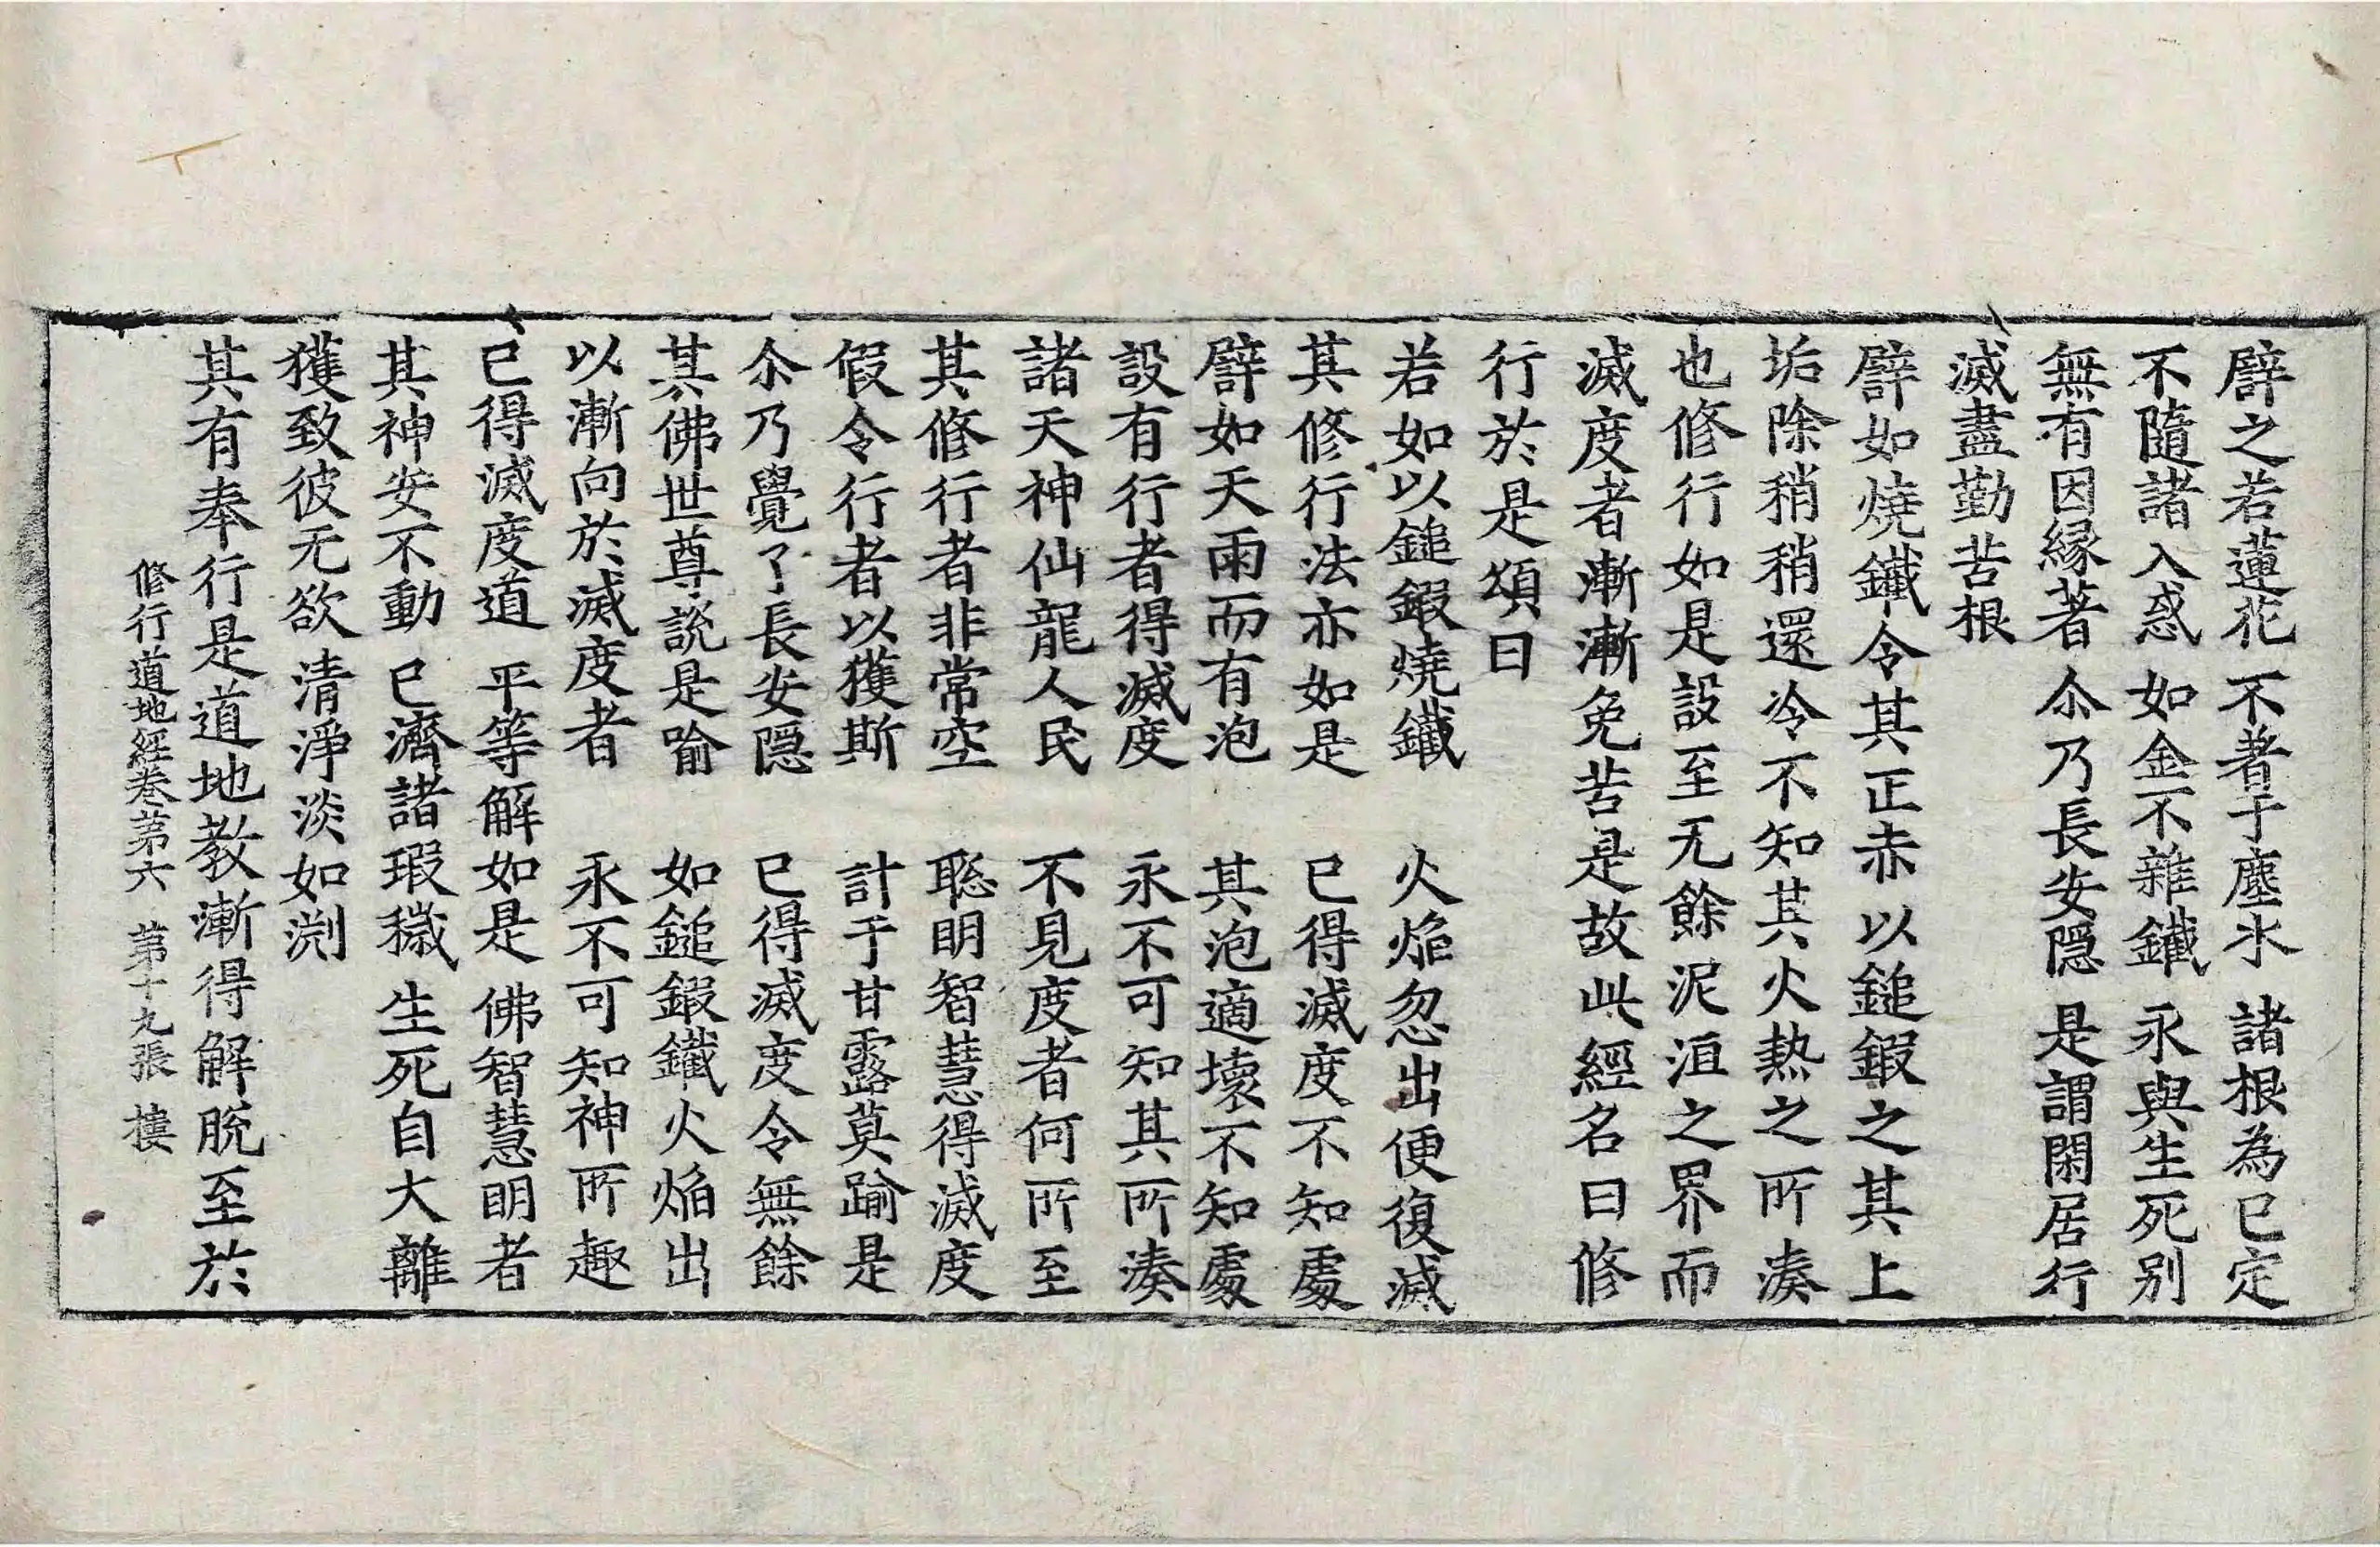 譬之若蓮花 不著于塵水 諸根為已定
不隨諸入惑 如金不雜鐵 永與生死别
無有因緣著 尒乃長安隱 是謂閑居行
滅盡勤苦根
譬如燒鐵令其正赤以鎚鍛之其上
垢除稍稍還冷不知其火熱之所湊
也修行如是設至无餘泥洹之界而
滅度者漸漸免苦是故此經名曰修
行於是頌曰
若如以鎚鍛燒鐵 火焰忽出便復滅
其修行法亦如是 已得滅度不知處
譬如天雨而有泡 其泡適壞不知處
設有行者得滅度 永不可知其所湊
諸天神仙龍人民 不見度者何所至
其修行者非常空 聦明智慧得滅度
假令行者以獲斯 計于甘露莫踰是
尒乃覺了長安隱 已得滅度令無餘
其佛世尊說是喻 如鎚鍛鐵火焰出
以漸向於滅度者 永不可知神所趣
已得滅度道 平等解如是 佛智慧明者
其神安不動 已濟諸瑕穢 生死自大離
獲致彼无欲 清淨淡如渕
其有奉行是道地教漸得解脫至於
修行道地經卷第六 第十九張 樓